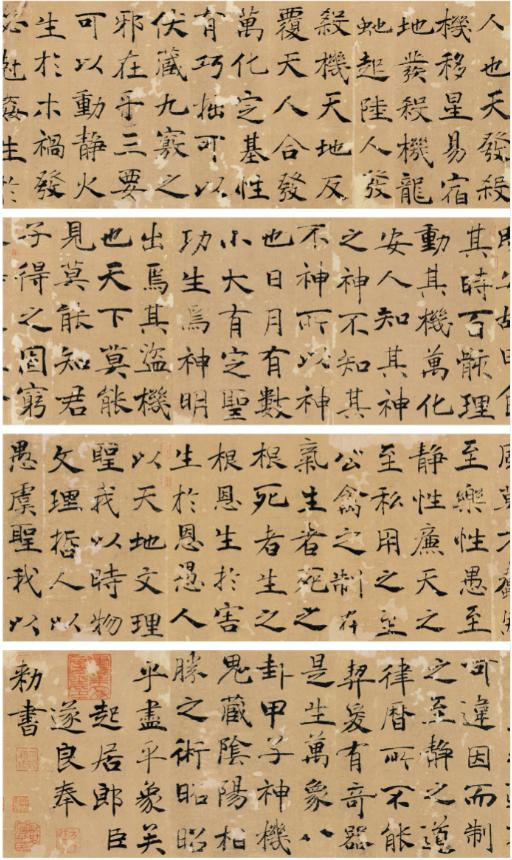 人也天發殺
機移星易宿
地發殺機龍
虵起陸人發
殺機天地反
覆天人合發
萬化定基性
有巧拙可以
伏藏九竅之
邪在乎三要
可以動靜火
生於木禍發
必尅姦生於
故曰食
其時百骸理
動其機萬化
安人知其神
之神不知其
不神所以神
也日月有數
小大有定聖
功生焉神明
出焉其盜機
也天下莫能
見莫能知君
子得之固窮
至樂性愚至
靜性廉天之
至私用之至
公禽之制在
氣生者死之
根死者生之
根恩生於害
生於恩愚人
以天地文理
聖我以時物
文理哲人以
愚虞聖我以
可違因而制
之至靜之道
律曆所不能
契爰有奇器
是生萬象八
卦甲子神機
鬼藏陰陽相
勝之術昭昭
乎盡乎象矣
起居郎臣
遂良奉
勑書